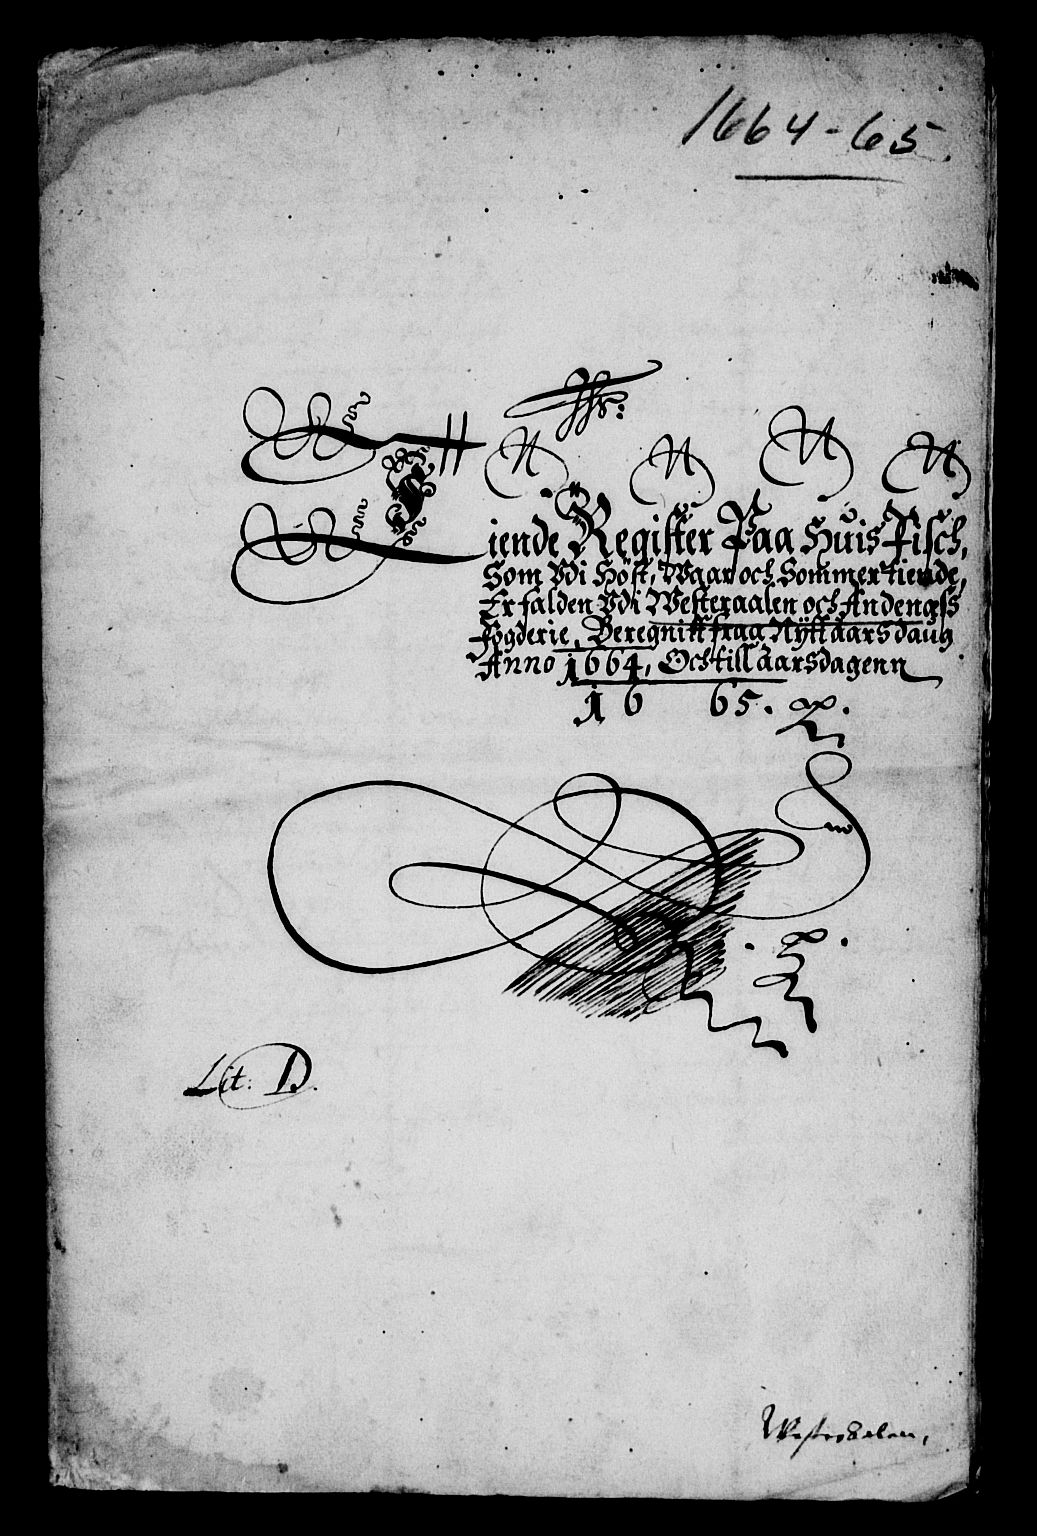 1664-65.
Tiende Register Paa Huis Fisch,
Som Udi Höst, Waar och Sommer tiende,
Er falden Udi Westeraalen och Andenæss
Fogderie, Beregnitt fraa Nÿtt aars daug
Anno 1664, Och till aarsdagenn
16 65.
Lit: D.
Westeraalen,